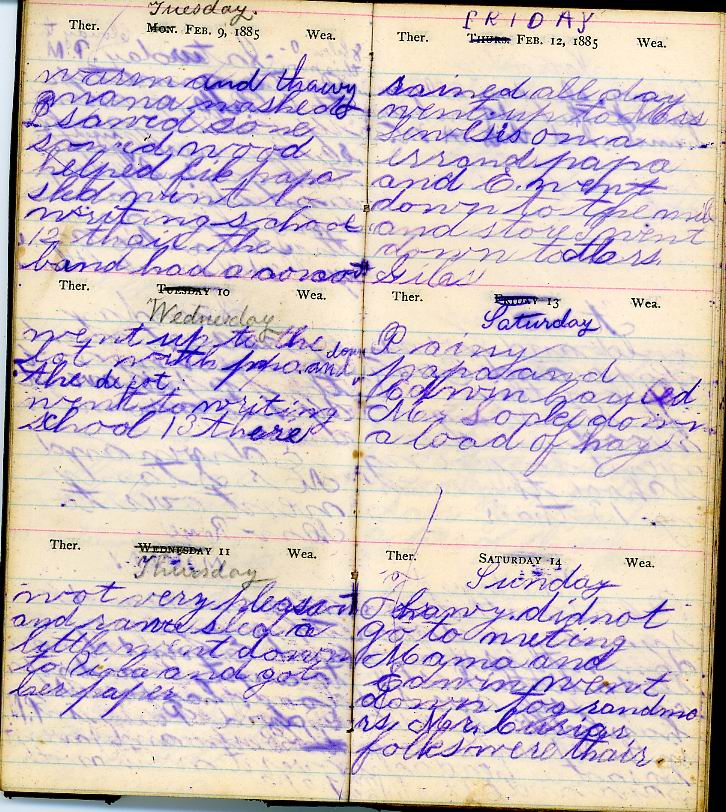 Tuesday.
Ther. Mon. Feb. 9, 1885 Wea.
warm and thawy
mana washed
I sawed some
sowed wood
helped papa
went to
writing school
12 thair the
band had a
Ther. Tuesday 10 Wea.
Wednesday
went up to the
lot with papa and down
the depot.
went to writing
school 13 there
Ther. Wednesday 11 Wea.
Thursday
not very pleasant
and raned sleg a
little went down
to and got
her paper
FRIDAY
Ther. Thurs. Feb. 12, 1885 Wea.
rained all day
went up to Mrs
on a
irrand papa
and E. went
down to the mill
and store I went
down to Mrs
Silas
Ther. Friday 13 Wea.
Saturday
Rainy
papa and
Edwin hauled
Mr. down
a load of hay
Ther. Saturday 14 Wea.
Sunday
Thawy. did not
go to meting
Mama and
Edwin went
down to grandmo
rs Mr. Currier
folks were thair.